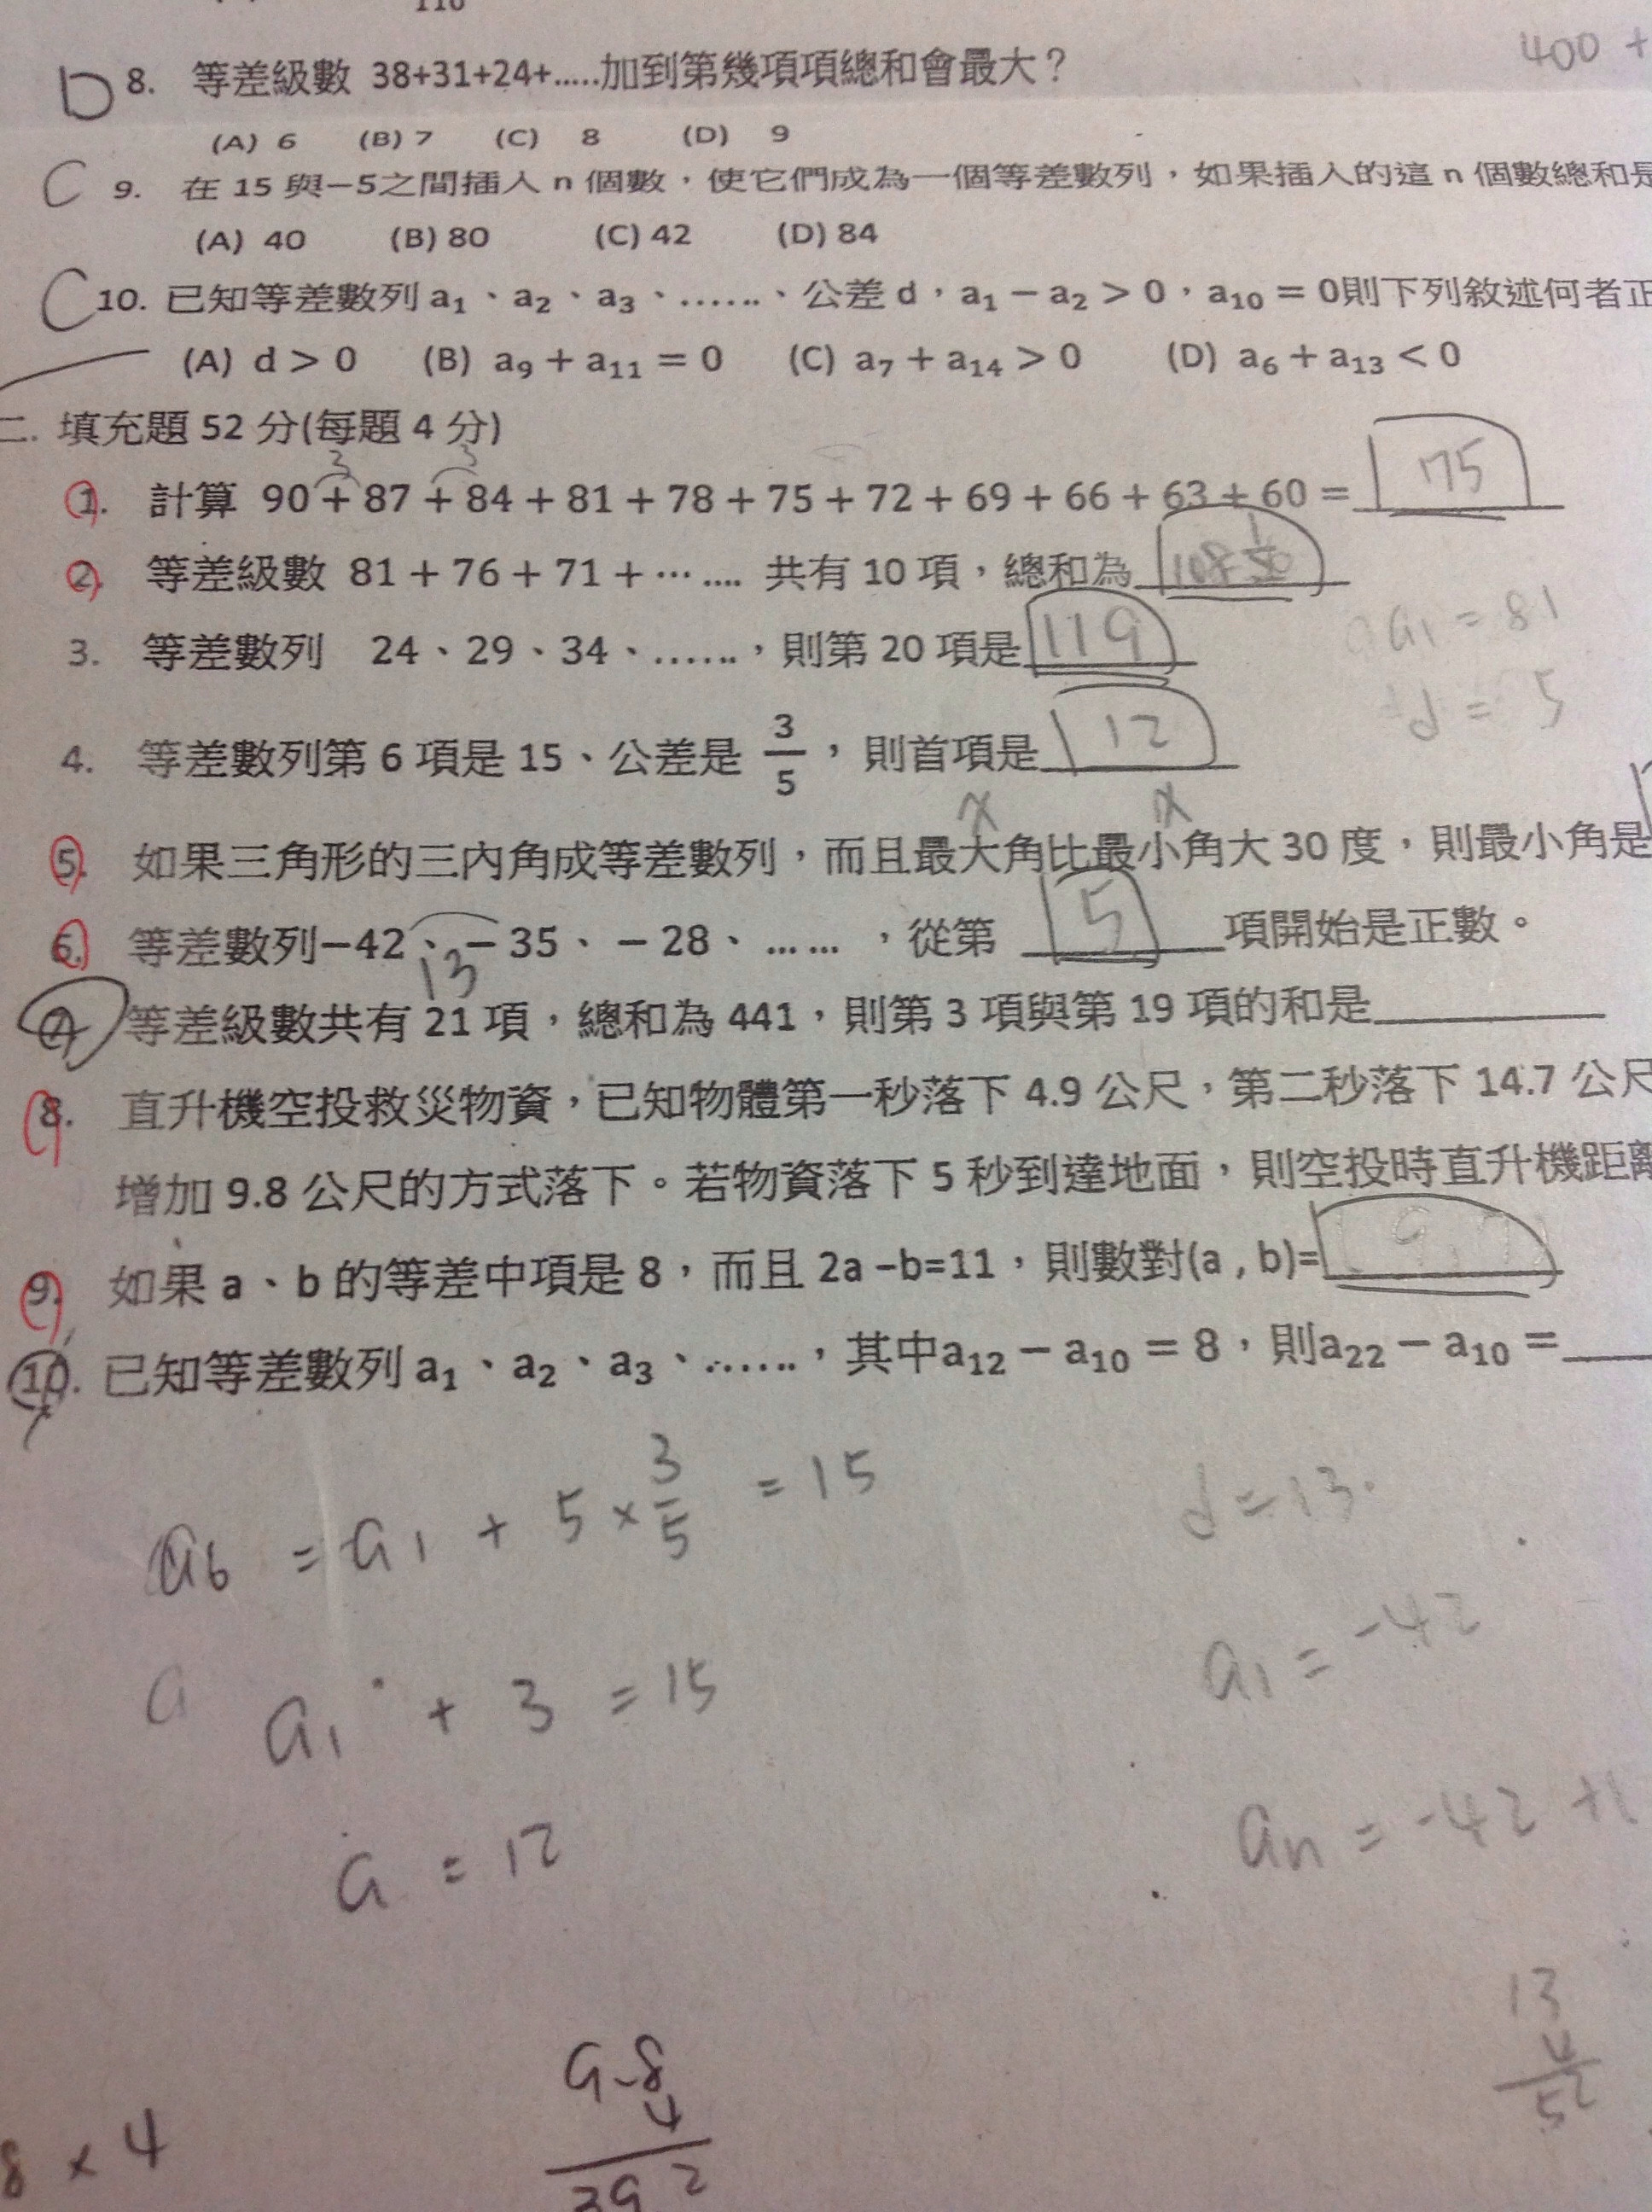 110
D 8. 等差級數 38+31+24+.....加到第幾項項總和會最大？
400 +
(A) 6 (B) 7 (C) 8 (D) 9
C 9. 在 15 與−5之間插入 n 個數，使它們成為一個等差數列，如果插入的這 n 個數總和是
(A) 40 (B) 80 (C) 42 (D) 84
C 10. 已知等差數列 a₁、a₂、a₃、……、公差 d，a₁ − a₂ > 0，a₁₀ = 0則下列敘述何者正
(A) d > 0 (B) a₉ + a₁₁ = 0 (C) a₇ + a₁₄ > 0 (D) a₆ + a₁₃ < 0
二. 填充題 52 分(每題 4 分)
3 3
1. 計算 90 + 87 + 84 + 81 + 78 + 75 + 72 + 69 + 66 + 63 + 60 = 175
2. 等差級數 81 + 76 + 71 + ⋯ .... 共有 10 項，總和為
a₁ = 81
3. 等差數列 24、29、34、……，則第 20 項是 119
d = 5
4. 等差數列第 6 項是 15、公差是 3/5， 則首項是 12
x x
5. 如果三角形的三內角成等差數列，而且最大角比最小角大 30 度，則最小角是
6. 等差數列−42、− 35、− 28、… …，從第 5 項開始是正數。
13
7. 等差級數共有 21 項，總和為 441，則第 3 項與第 19 項的和是
8. 直升機空投救災物資，已知物體第一秒落下 4.9 公尺，第二秒落下 14.7 公尺
增加 9.8 公尺的方式落下。若物資落下 5 秒到達地面，則空投時直升機距離
9. 如果 a、b 的等差中項是 8，而且 2a –b=11，則數對(a , b)=
10. 已知等差數列 a₁、a₂、a₃、……，其中a₁₂ − a₁₀ = 8，則a₂₂ − a₁₀ =
a₆ = a₁ + 5 × 3/5 = 15
d = 13
a₁ + 3 = 15
a₁ = -42
a = 12
aₙ = -42 +
13
4
52
9.8
4
39 2
8 × 4